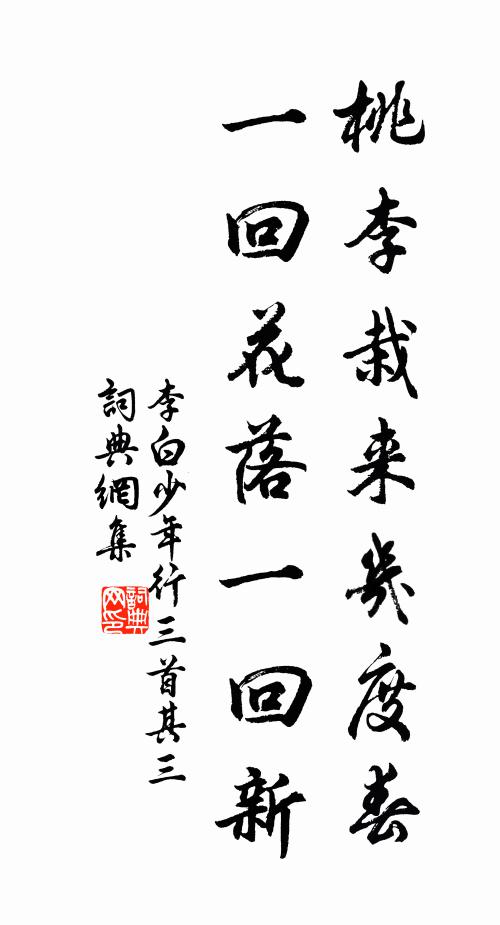 桃李栽来幾度春
一回花落一回新
李白少年行三首其三
詞典網集
詞典网印